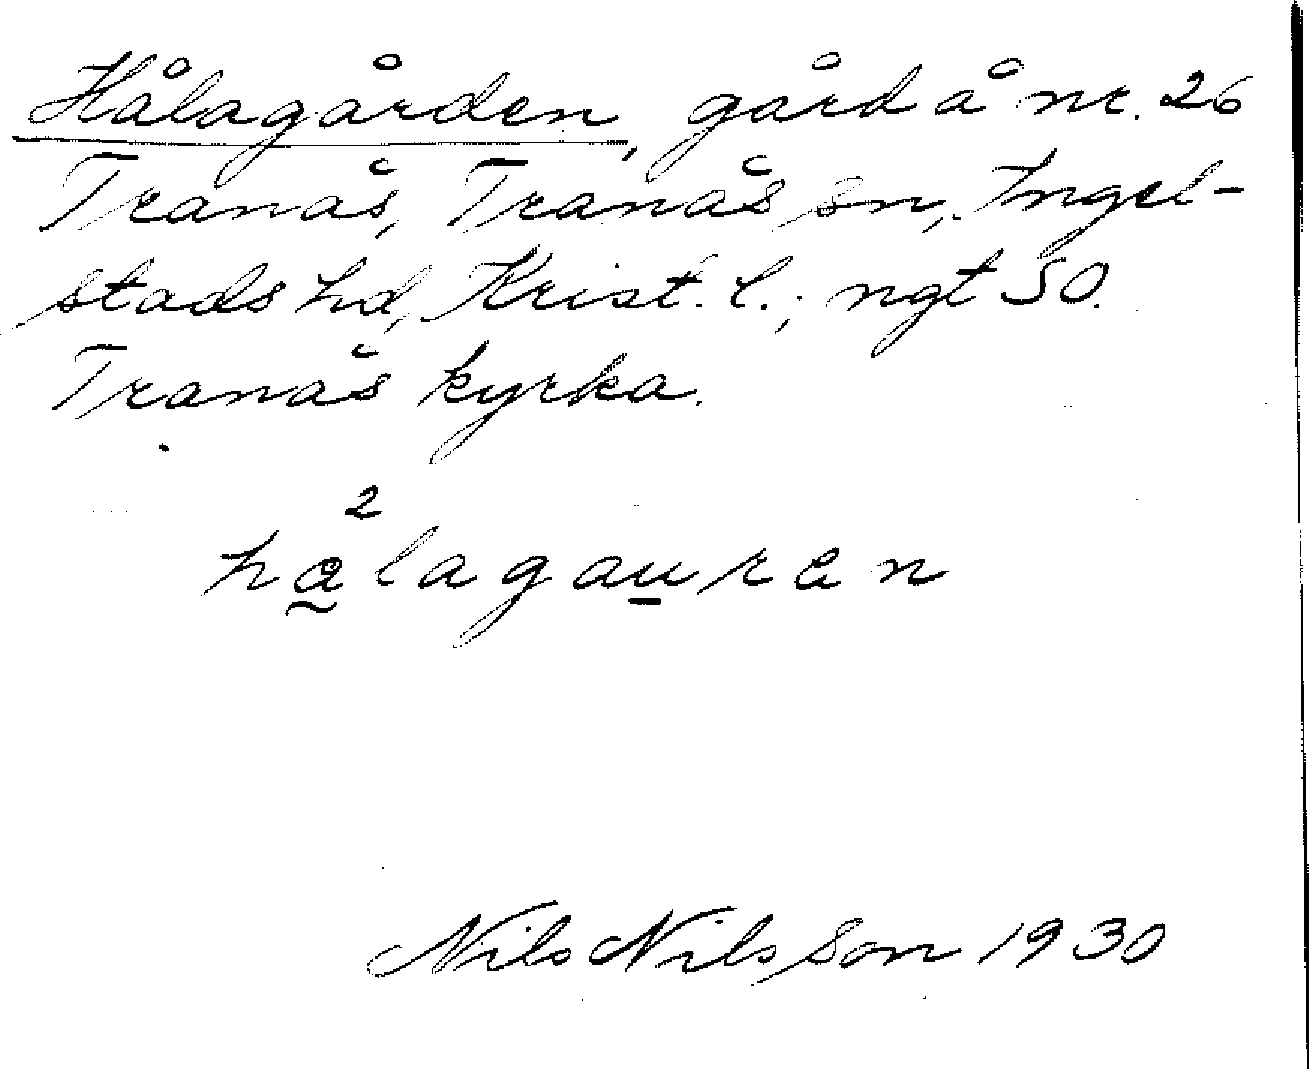 Hålagården, gård å nr. 26
Tranås, Tranås sn, Ingel-
stads hd, Krist. l.; ngt SO.
Tranås kyrka.
2
hålagauren
Nils Nilsson 1930